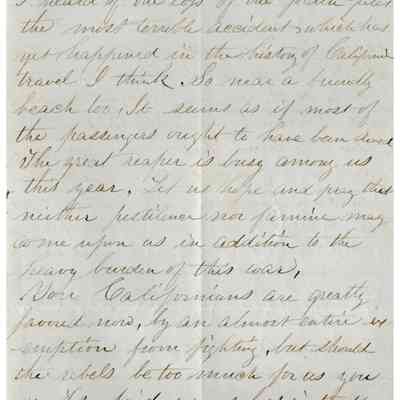 I heard of the loss of the Golden Gate
the most terrible accident, which has
yet happened in the history of California
travel I think. So near a friendly
beach too, It seems as if most of
the passengers ought to have been saved
The great reaper is busy among us
this year. Let us hope and pray that
neither pestilence nor famine may
come upon us in addition to the
heavy burden of this war,
You Californians are greatly
favored now, by an almost entire ex
emption from fighting, but should
the rebels be too much for us you